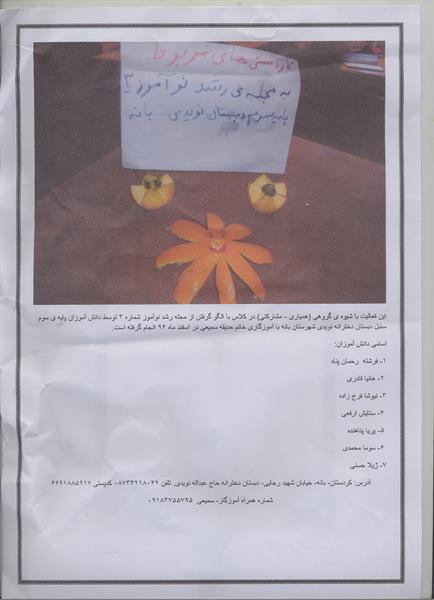 کاردستی های مربوط
به مجله ی رشد نوآموز ۳
پایه سوم دبستان نویدی - بانه
این فعالیت با شیوه ی گروهی (همیاری - مشارکتی) در کلاس با الگو گرفتن از مجله رشد نوآموز شماره ۳ توسط دانش آموزان پایه ی سوم
سنبل دبستان دخترانه نویدی شهرستان بانه با آموزگاری خانم حدیقه سمیعی در اسفند ماه ۹۶ انجام گرفته است.
اسامی دانش آموزان:
۱- فرشته رحمان پناه
۲- هانیا قادری
۳- نیوشا فرج زاده
۴- ستایش ارفعی
۵- پریا پناهنده
۶- سوما محمدی
۷- ژیلا حسنی
آدرس: کردستان- بانه- خیابان شهید رجایی- دبستان دخترانه حاج عبداله نویدی. تلفن ۰۸۷۳۴۲۱۸۰۴۲ کدپستی ۶۶۹۱۸۸۵۹۱۷
شماره همراه آموزگار- سمیعی ۰۹۱۸۳۷۵۵۷۹۵